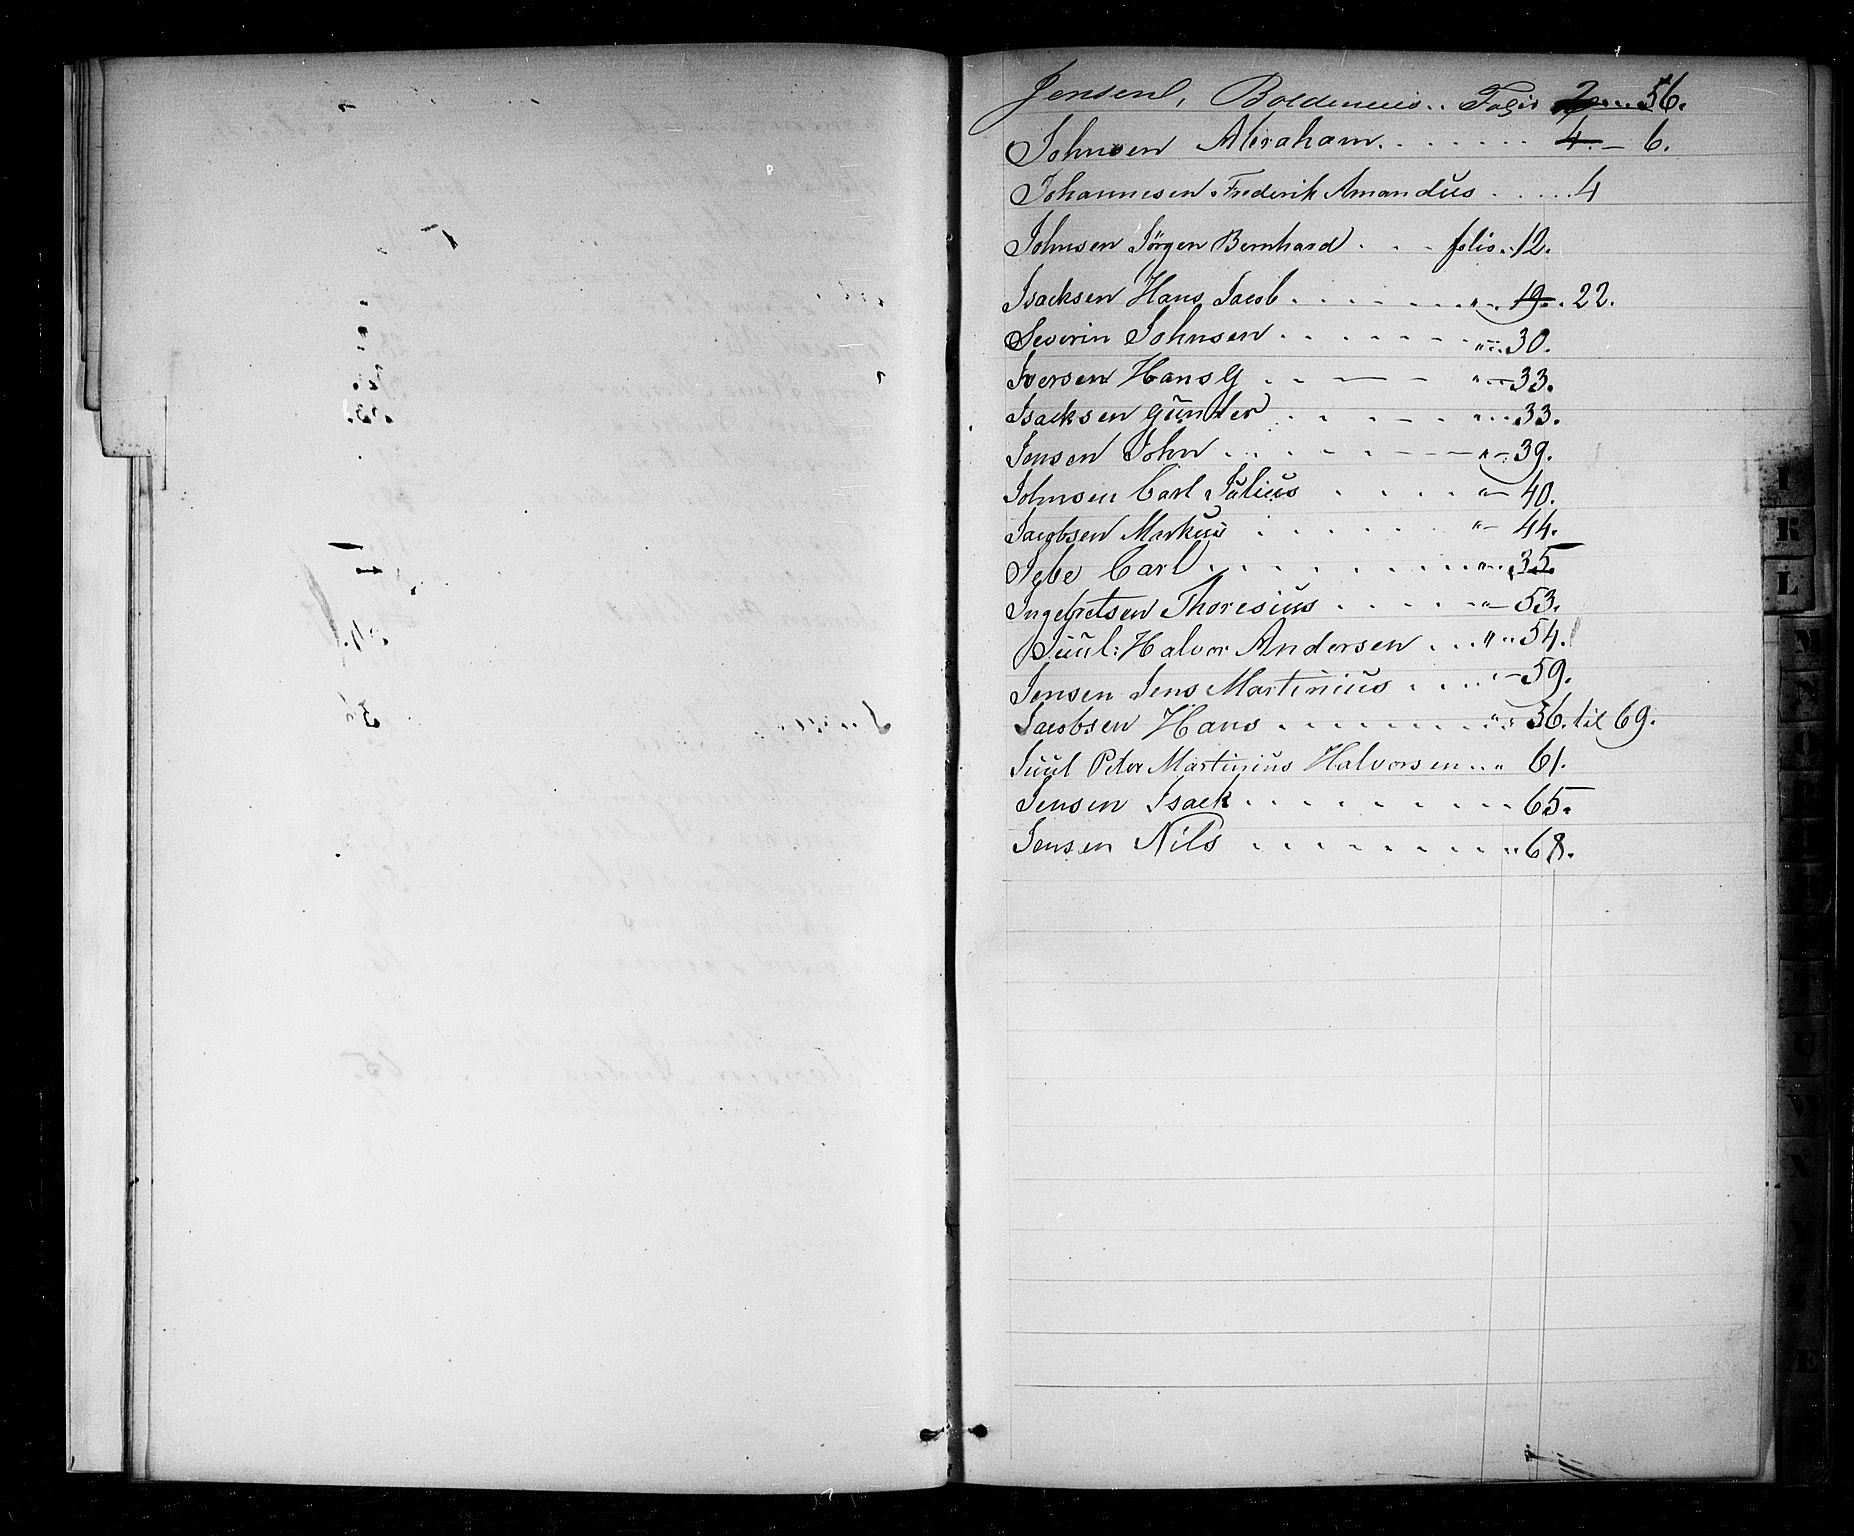 Jensen, Boldeneuis.. Folio 2....56.
Johnsen Abraham. . . . . . . . 4.— 6.
Johannesen. Frederik Amandus . . . . 4
Johnsen Jörgen Bernhard . . . folio. 12.
Isacksen Hans Jacob . . . . . . . „ . 19. . 22.
Severin Johnsen . . . . . . „ . 30.
Iversen Hans G . . . . „ . . 33.
Isacksen Gunder . . . . . „ . . 33.
Jensen John . . . . . . . „ . 39.
Johnsen Carl Julius . . . . „ 40.
Jacobsen Markus . . . . . „ 44.
Igbe Carl . . . . . . . . . „ . . 35.
Ingebretsen Thoresius . . . . „ 53.
Juul: Halvor Andersen . . . „ . . 54.
Jensen Jens Martinius . . . . „ 59.
Jacobsen Hans . . . . . . . . „ . 56. til 69.
Juul Peter Martinius Halvorsen . . „ 61.
Jensen Isack . . . . . . . . . 65.
Jensen Nils . . . . . . . . . 68.
I
K
L
M
N
O
P
U
W
X
Y